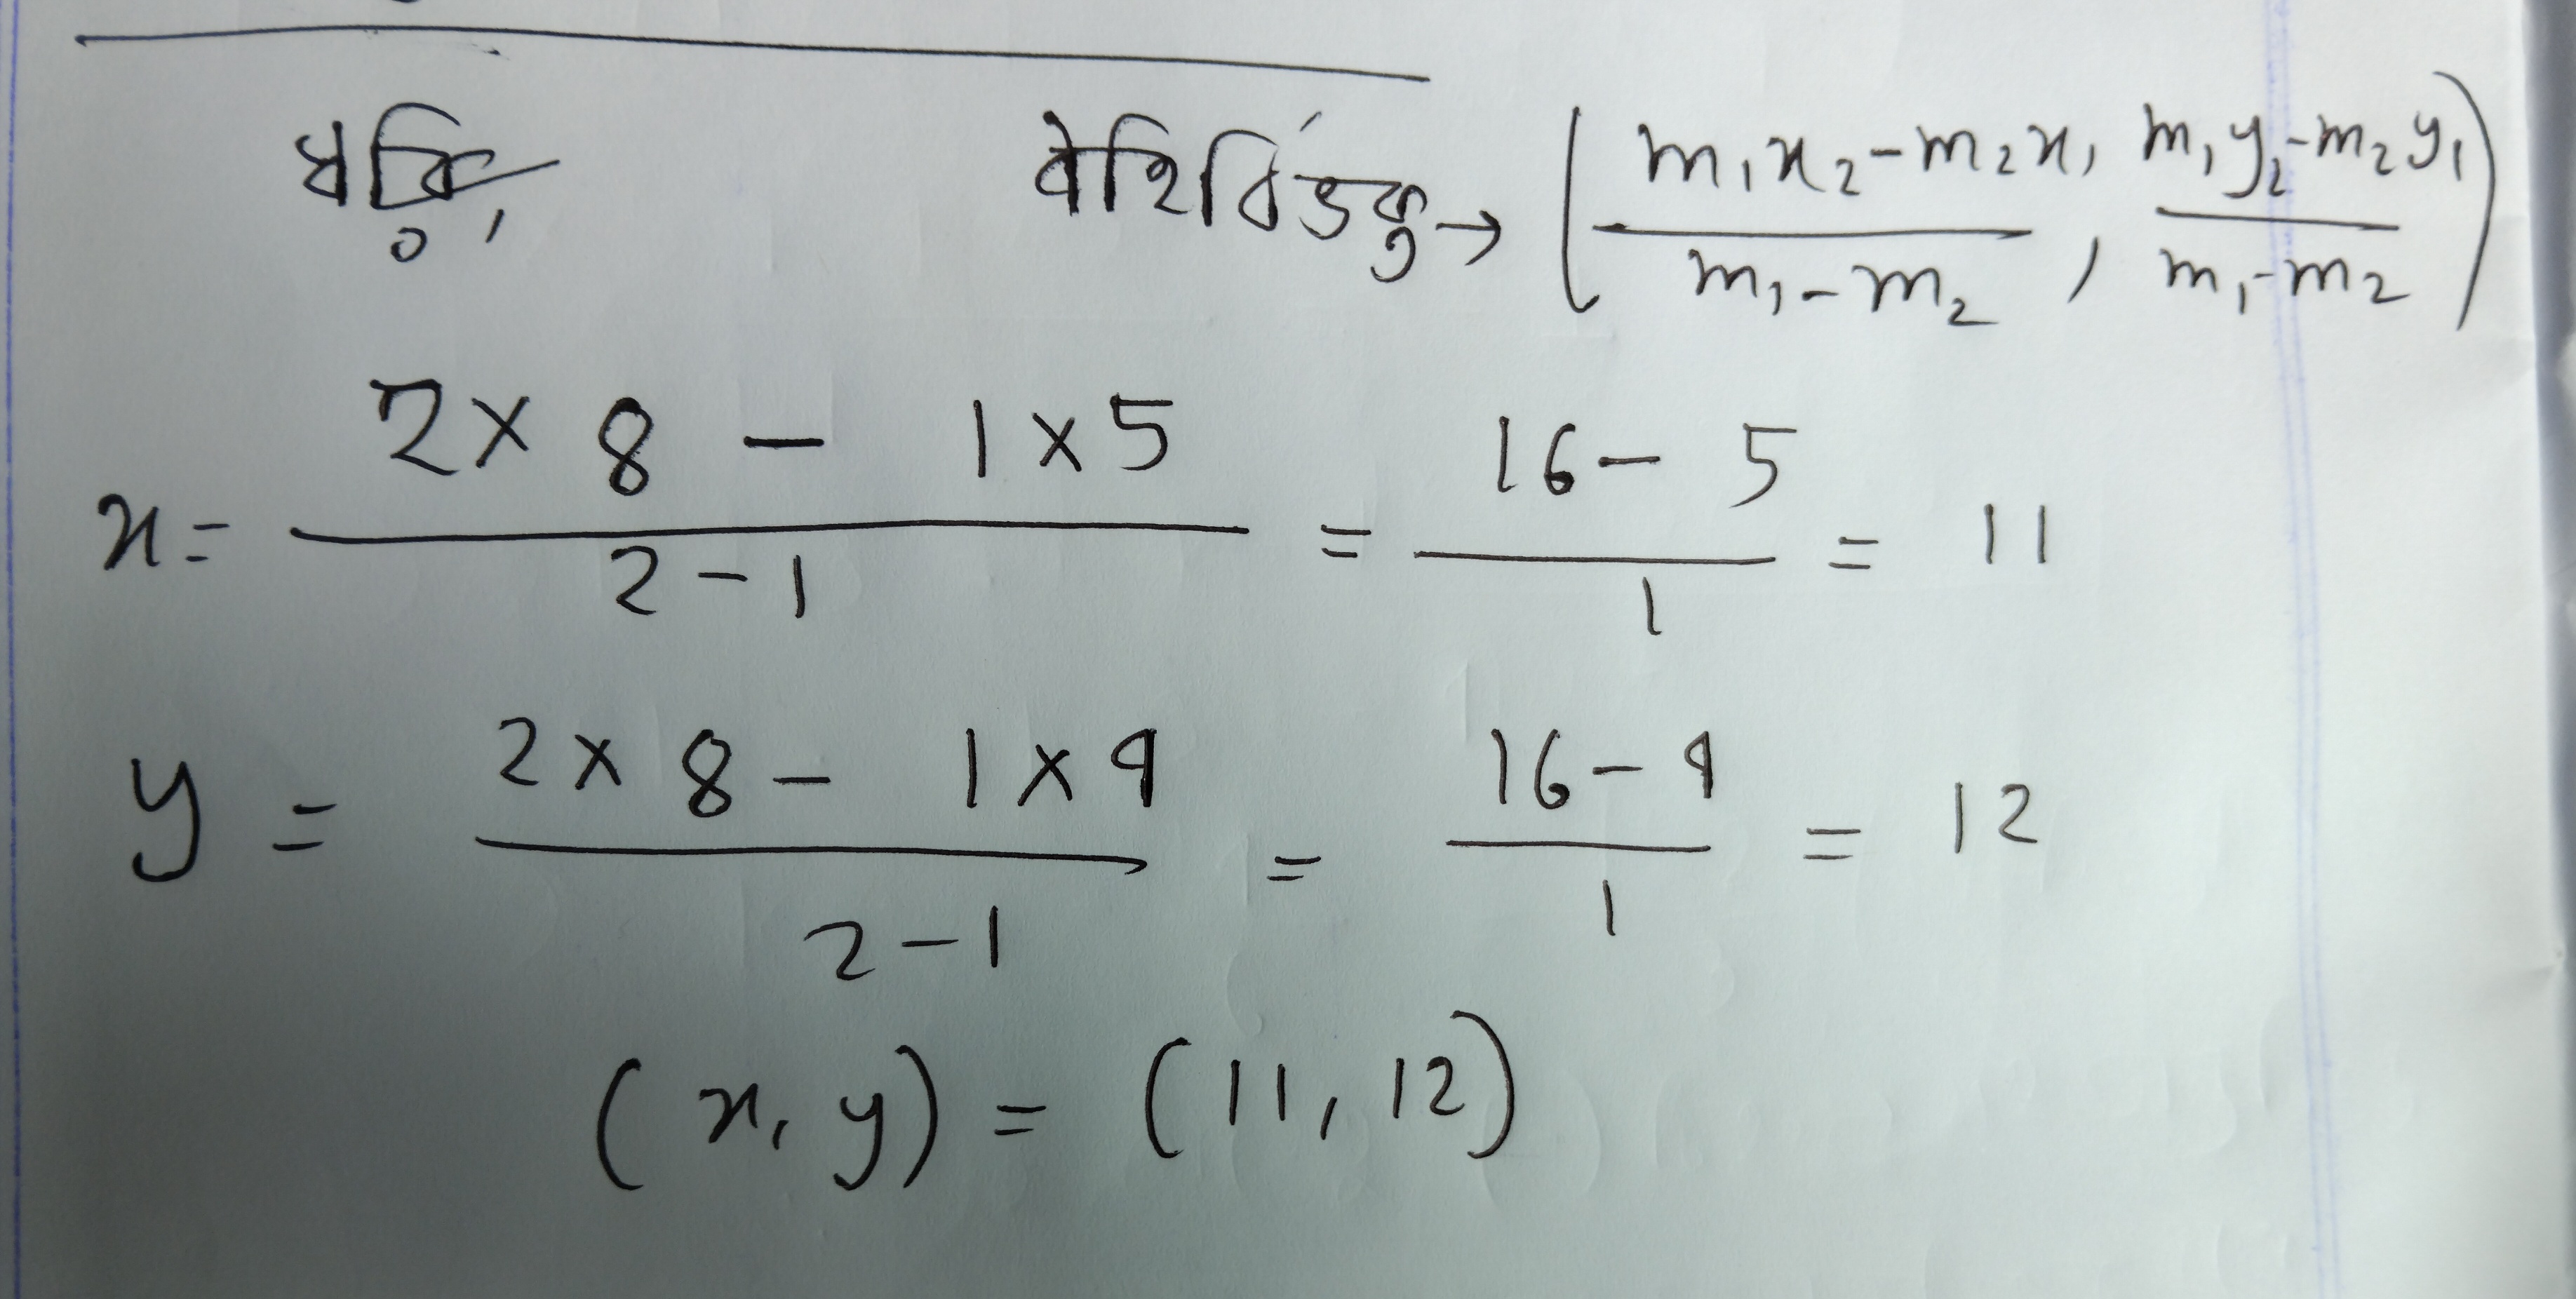 → (m₁x₂-m₂x₁/m₁-m₂, m₁y₂-m₂y₁/m₁-m₂)
x = 2×8 - 1×5/2-1 = 16-5/1 = 11
y = 2×8 - 1×4/2-1 = 16-4/1 = 12
(x, y) = (11, 12)